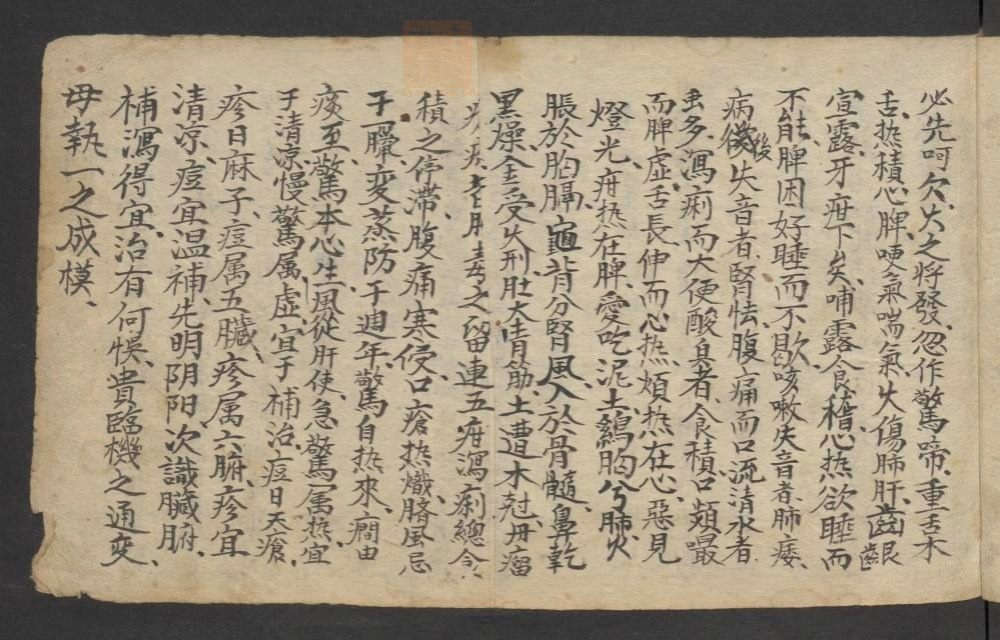 必先呵欠、火之將發、忽作驚啼、重舌木
舌、热積心脾、哽氣喘氣、火傷肺肝、齒齦
宣露、牙疳下矣、哺露食稽、心热欲睡而
不能、脾困好睡而不歇、咳嗽失音者、肺痿、
病後失音者、腎怯、腹痛而口流清水者
虫多、瀉痢而大便酸臭者、食積、口頻嘬
而脾虛、舌長伸而心热、煩热在心、惡見
燈光、疳热在脾、愛吃泥土、鷄胸兮肺火
脹於胸膈、龜背分腎風、入於骨髓、鼻乾
黑燥、金受火刑、肚大青筋、土遭木尅、丹瘤
之留連、五疳瀉痢總
積之停滯、腹痛寒侵、口瘡热熾、臍風忌
于一臘、変蒸防于週年、驚自热來、癇由
痰至、驚本心生、風從肝使、急驚属热、宜
于清凉、慢驚属虛、宜于補治、痘曰天瘡、
疹曰麻子、痘属五臓、疹属六腑、疹宜
清凉、痘宜温補、先明阴阳、次識臓腑、
補瀉得宜、治有何悞、貴臨機之通変、
毋執一之成模、